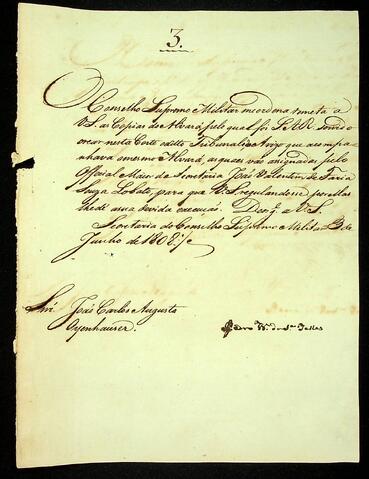 3.
O Conselho Supremo Militar me ordena remeta a
V.S. as Copias do Alvará, pelo qual foi S.A.R. servido
crear nesta Corte este Tribunal, e Avizo que acompa
nhava o mesmo Alvará, as quaes vão asignadas pelo
Official Maior da Secretaria José Valentim de Faria
Souza Lobato, para que V.S. regulandose por ellas
lhe dê a sua devida execução. Deos g.e a V.S.
Secretaria do Conselho Supremo Militar 3 de
Junho de 1808
Snr. João Carlos Augusto
Oyenhauzer.
Pedro